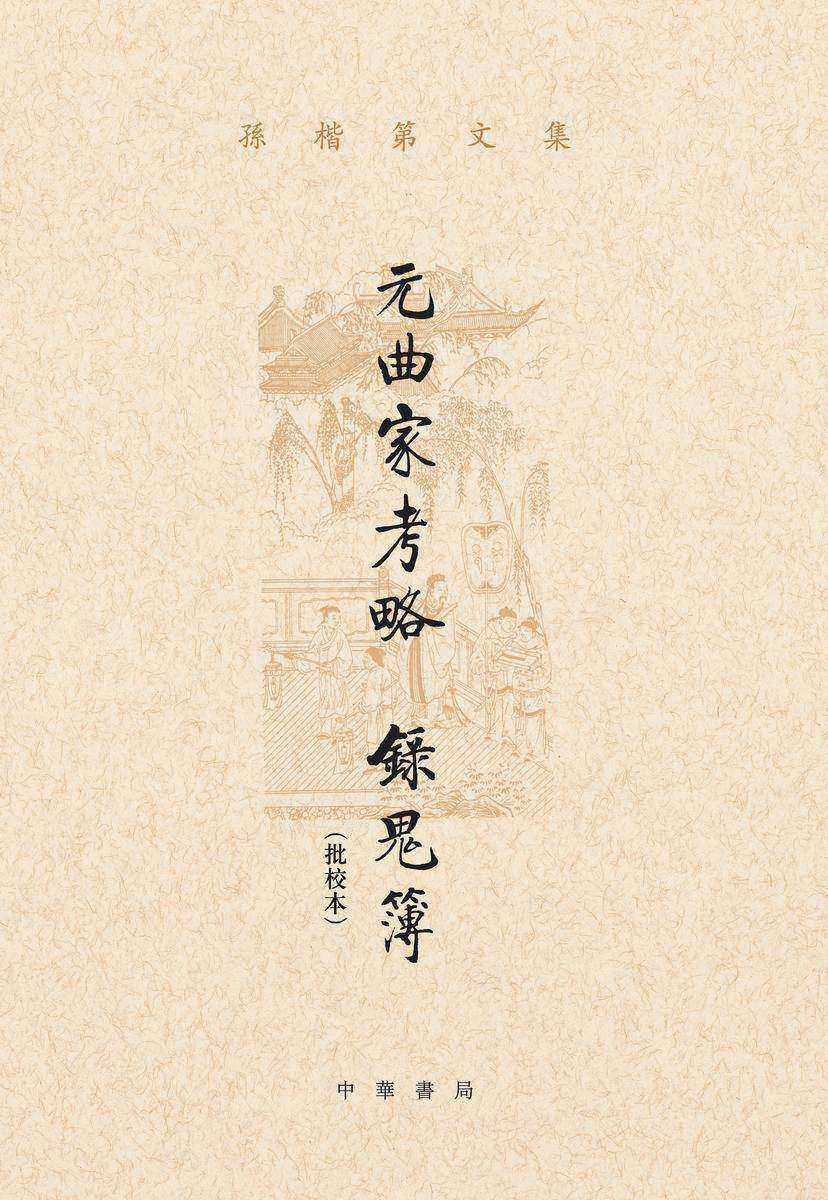 孫楷第文集
元曲家考略 錄鬼簿
（批校本）
中華書局